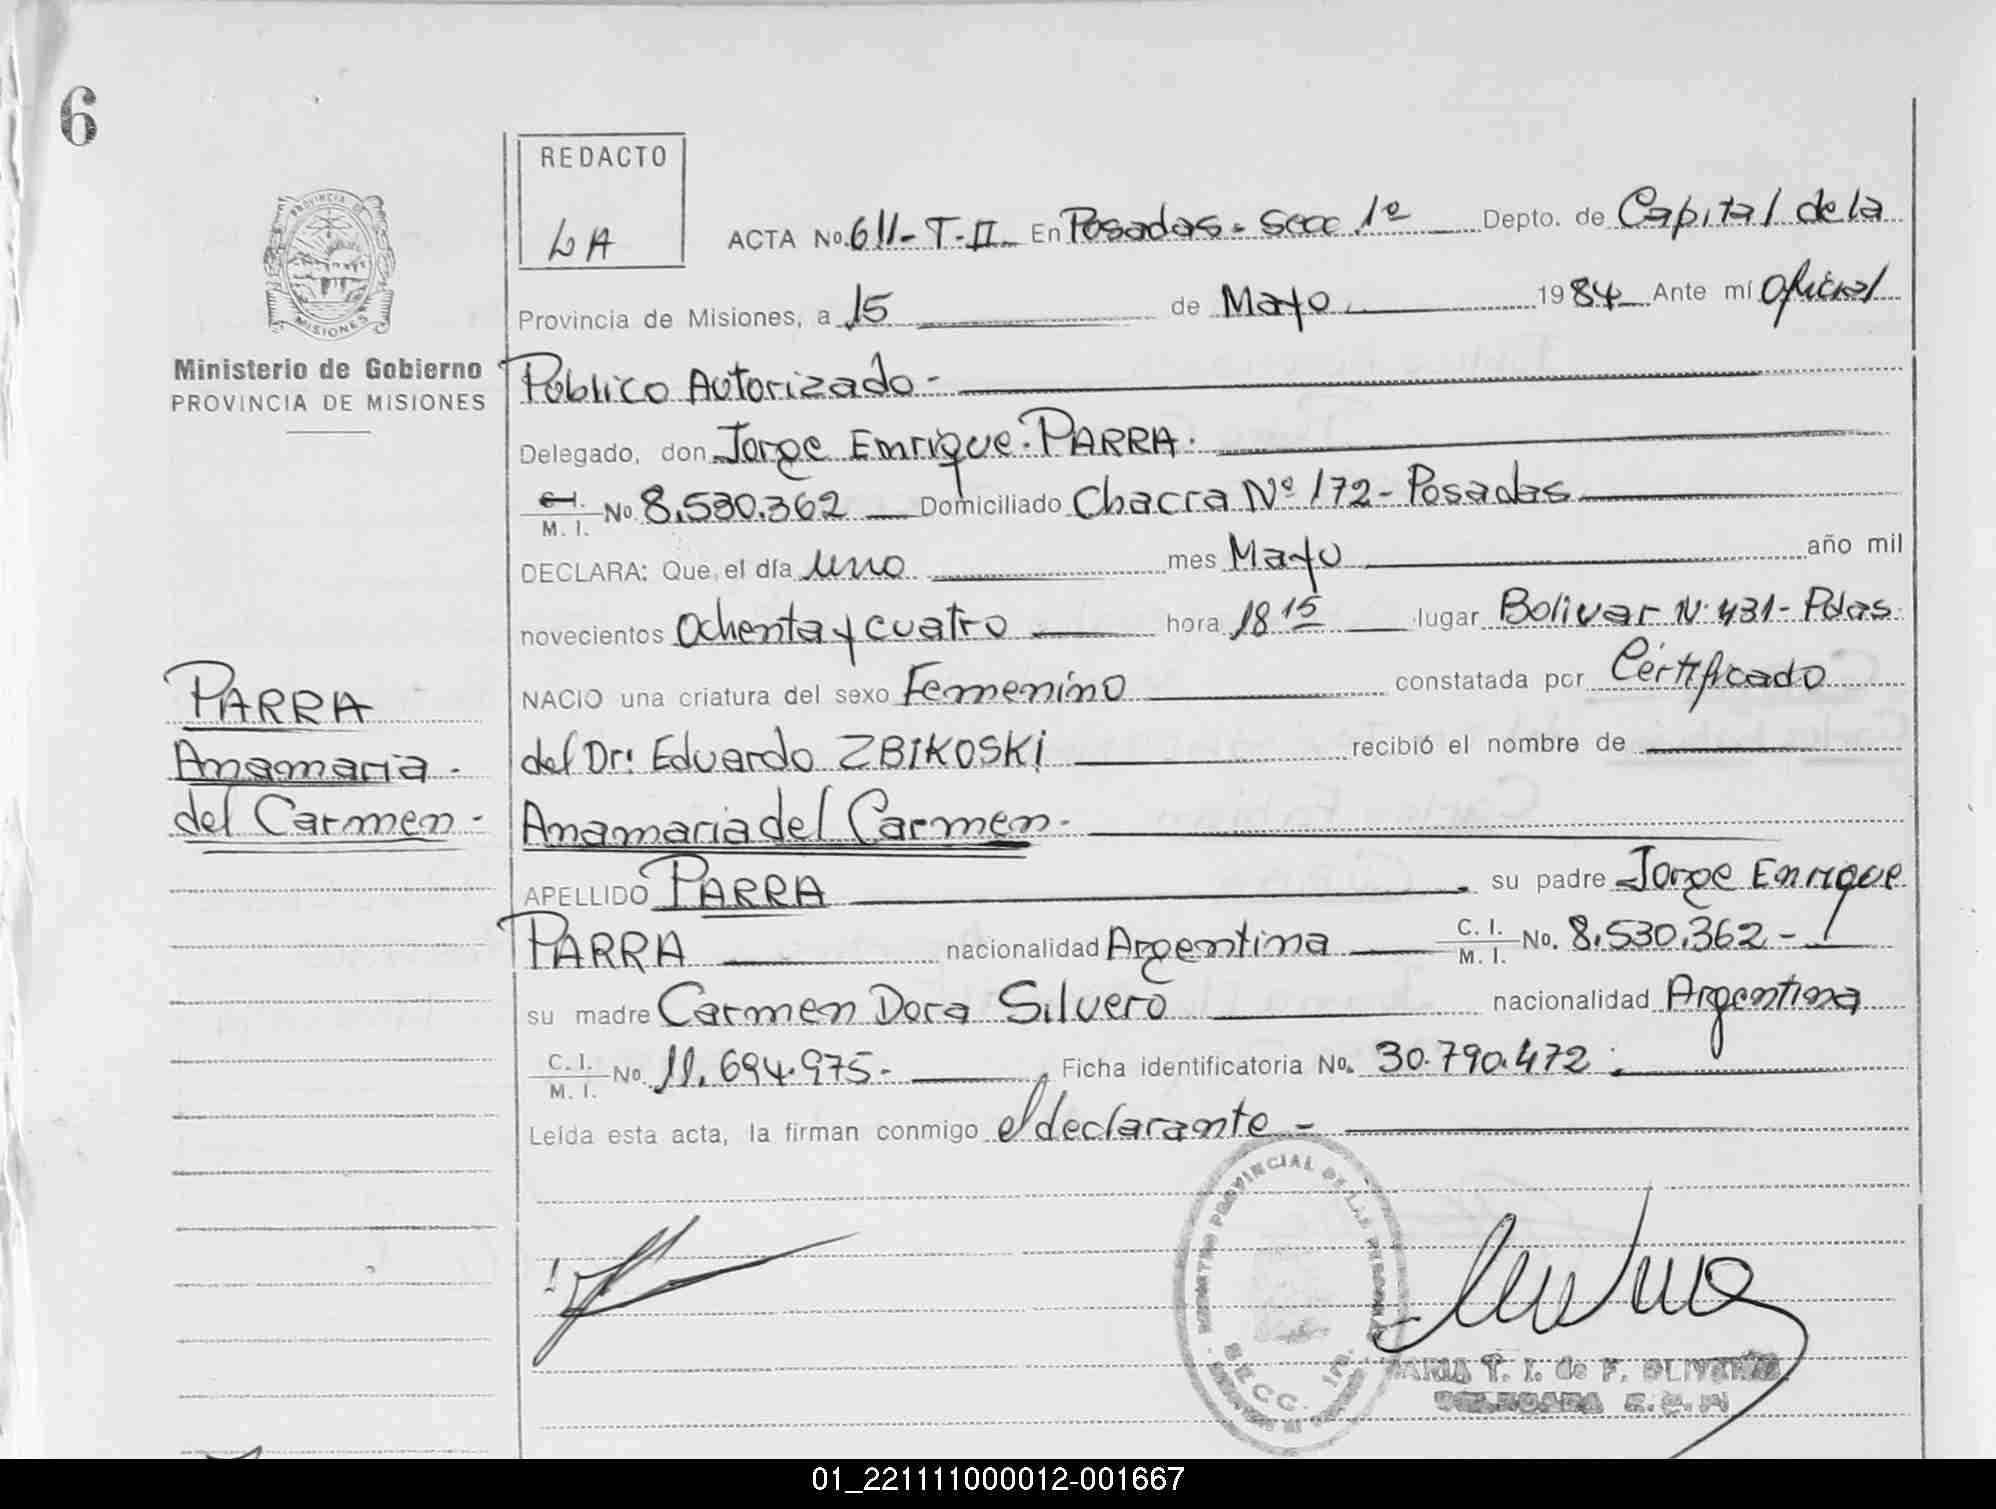 6
PROVINCIA DE
MISIONES
Ministerio de Gobierno
PROVINCIA DE MISIONES
PARRA
Anamaria.
del Carmen-
REDACTO
LA
ACTA No. 611-T-II En Posadas-secc 1º Depto. de Capital de la
Provincia de Misiones, a 15 de Mayo 1984 Ante mí Oficial
Público Autorizado-
Delegado, don Jorge Enrique. PARRA.
C. I. / M. I. No. 8.530.362 Domiciliado Chacra Nº 172-Posadas
DECLARA: Que, el día uno mes Mayo año mil
novecientos Ochenta y cuatro hora 18 15 lugar Bolivar N. 431-Pdas.
NACIO una criatura del sexo Femenino constatada por Certificado
del Dr: Eduardo ZBIKOSKI recibió el nombre de
Anamaria del Carmen-
APELLIDO PARRA su padre Jorge Enrique
PARRA nacionalidad Argentina C. I. / M. I. No. 8.530.362-
su madre Carmen Dora Silvero nacionalidad Argentina
C. I. / M. I. No. 11.694.975- Ficha identificatoria No. 30.790.472.
Leída esta acta, la firman conmigo el declarante-
PROVINCIAL DE LAS
SECC. 1ra.
MARIA T. I. de F. OLIVEIRA
DELEGADA
01_221111000012-001667